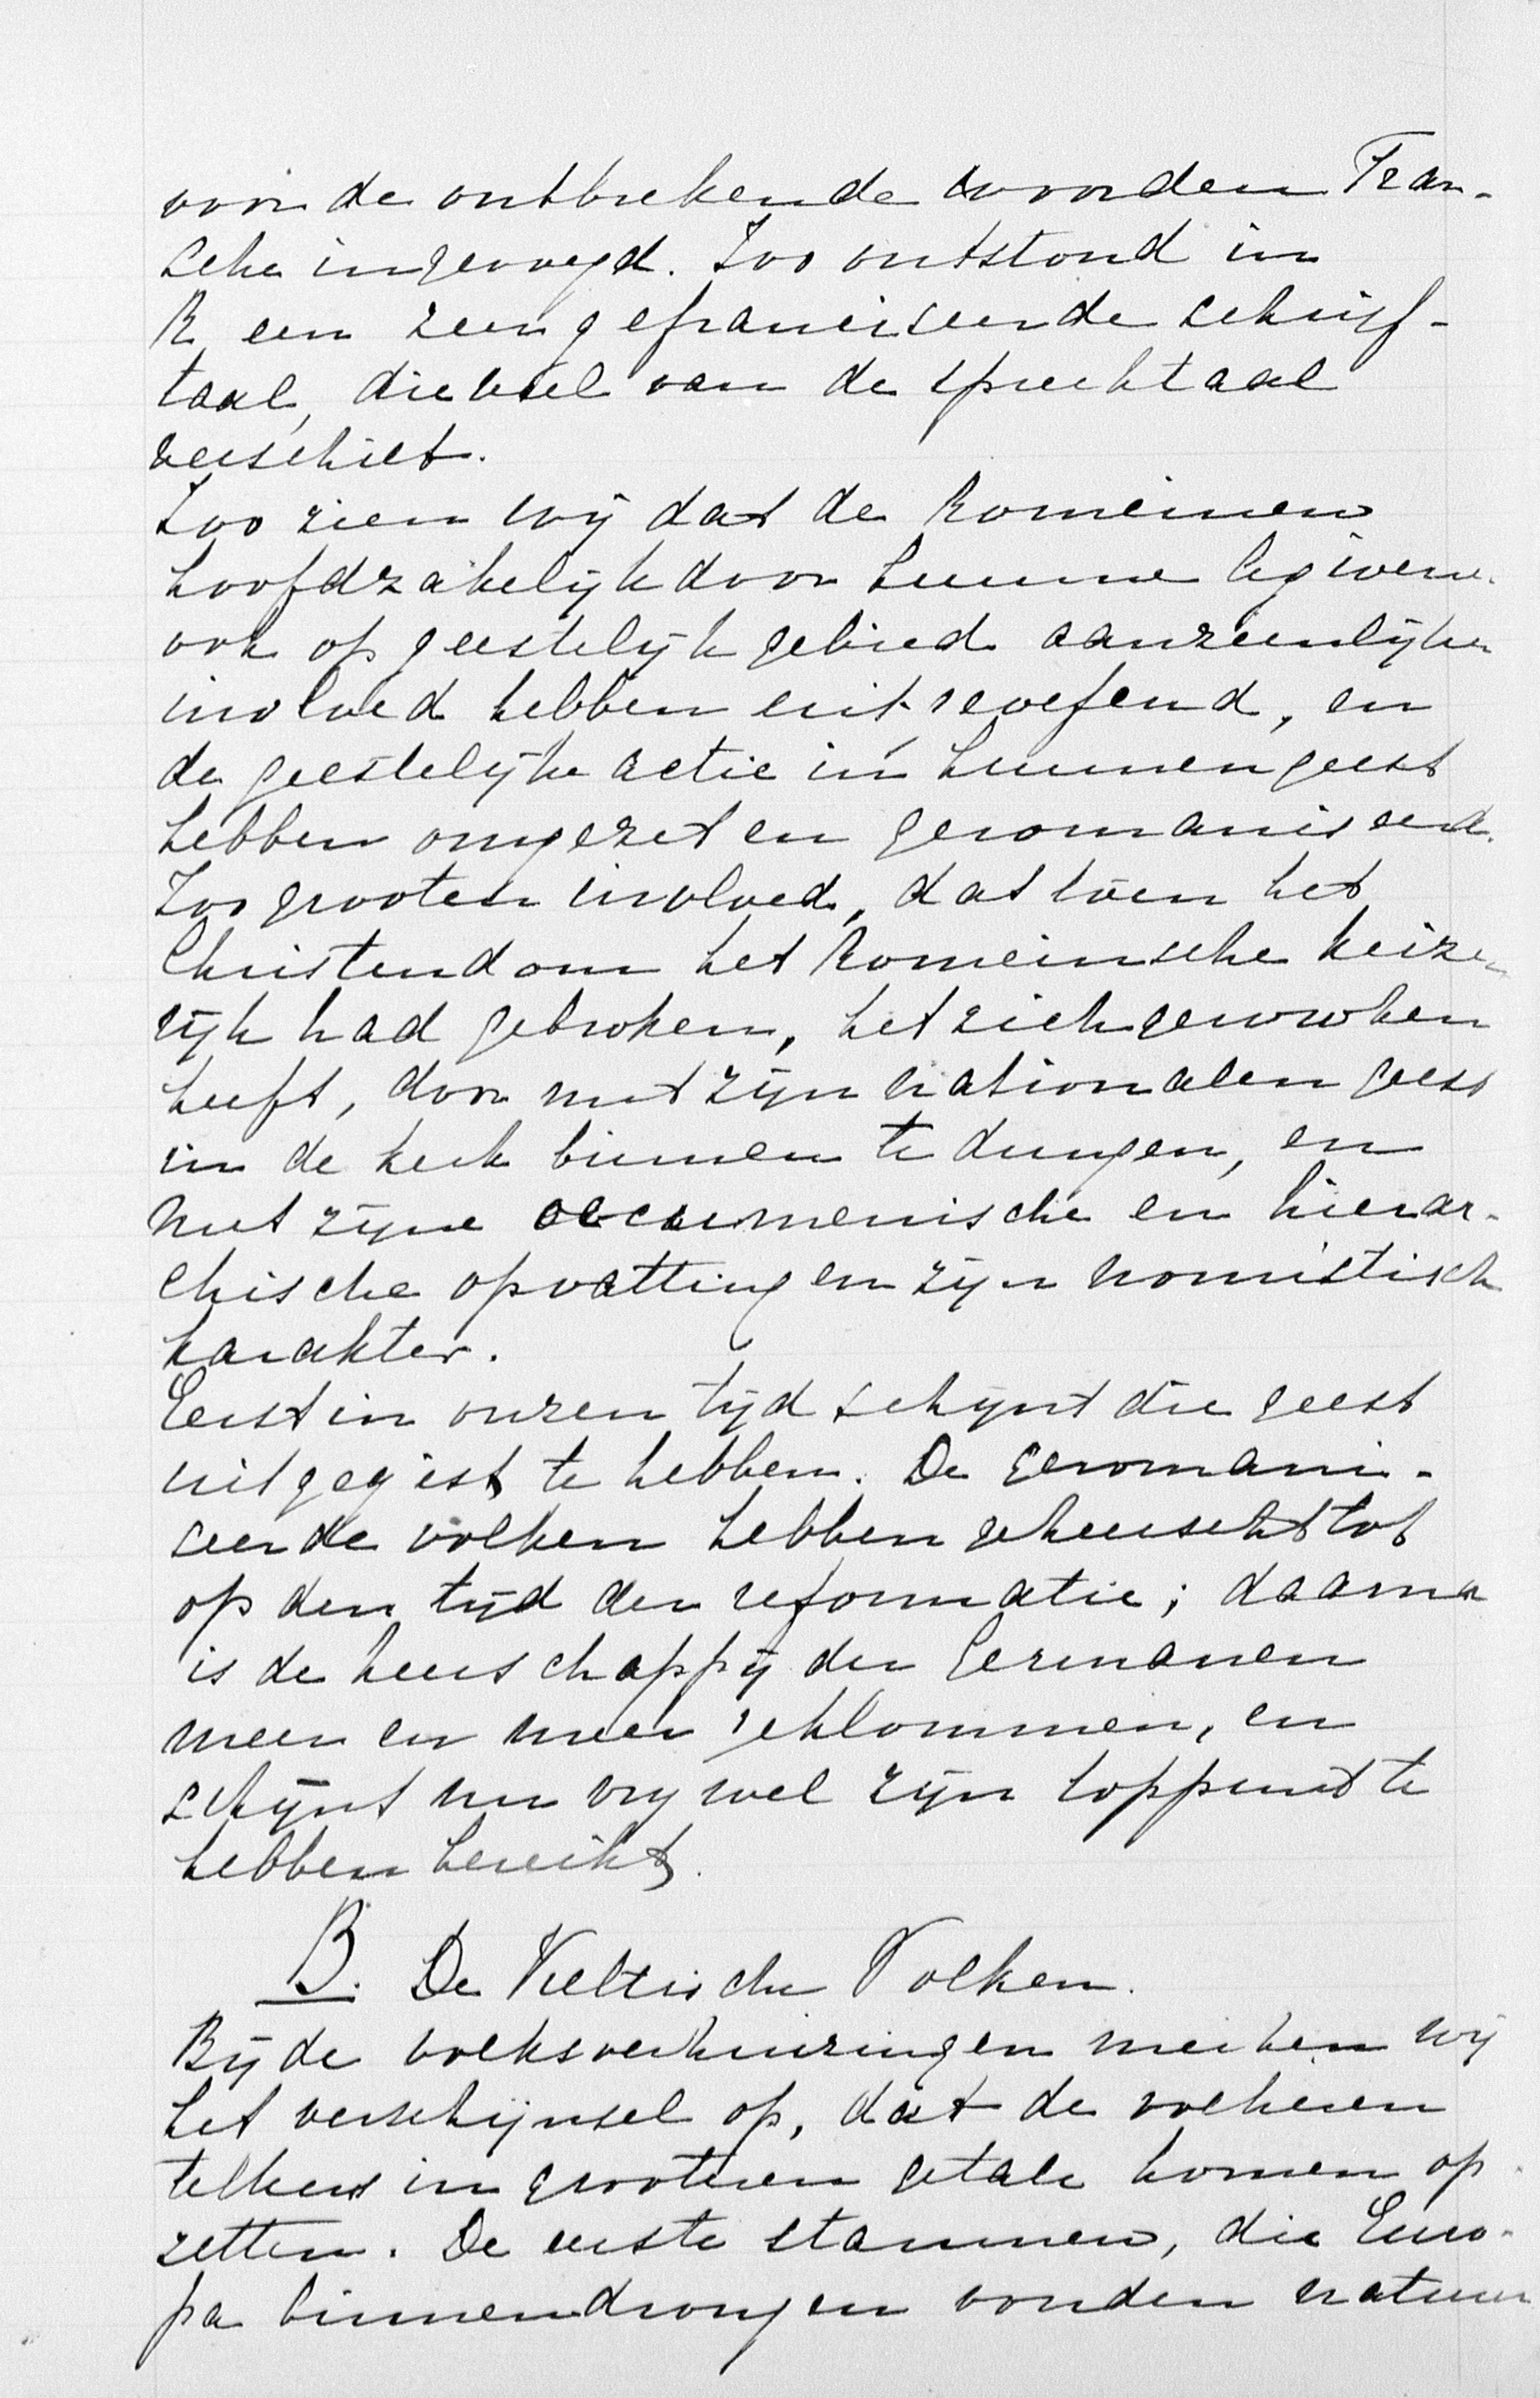 voor de ontbrekende woorden Fran-
sche ingevoegd. Zoo ontstond in
R een zeer gefranciseerde schrijf-
taal, die veel van de spreektaal
verschilt.
Zoo zien wij dat de Romeinen
hoofdzakelijk door hunne legioenen
ook op geestelijk gebied aanzienlijken
invloed hebben uitgeoefend, en
de geestelijke actie in hunnen geest
hebben omgezet en geromaniseerd.
Zoo grooten invloed, dat toen het
Christendom het Romeinsche keizer
rijk had gebroken, het zich gewroken
heeft, door met zijn nationalen geest
in de kerk binnen te dringen, en
met zijne oecumenische en hierar-
chische opvattingen zijn nomistisch
karakter.
Eerst in onzen tijd schijnt die geest
uitgegist te hebben. De geromani-
seerde volken hebben geheerscht tot
op den tijd der reformatie; daarna
is de heerschappij der Germanen
meer en meer geklommen, en
schijnt nu vrij wel zijn toppunt te
hebben bereikt.
B. De Keltische Volken.
Bij de volksverhuizingen merken wij
het verschijnsel op, dat de volkeren
telkens in grooteren getale komen op-
zetten. De eerste stammen, die Euro-
pa binnendrongen vonden natuur